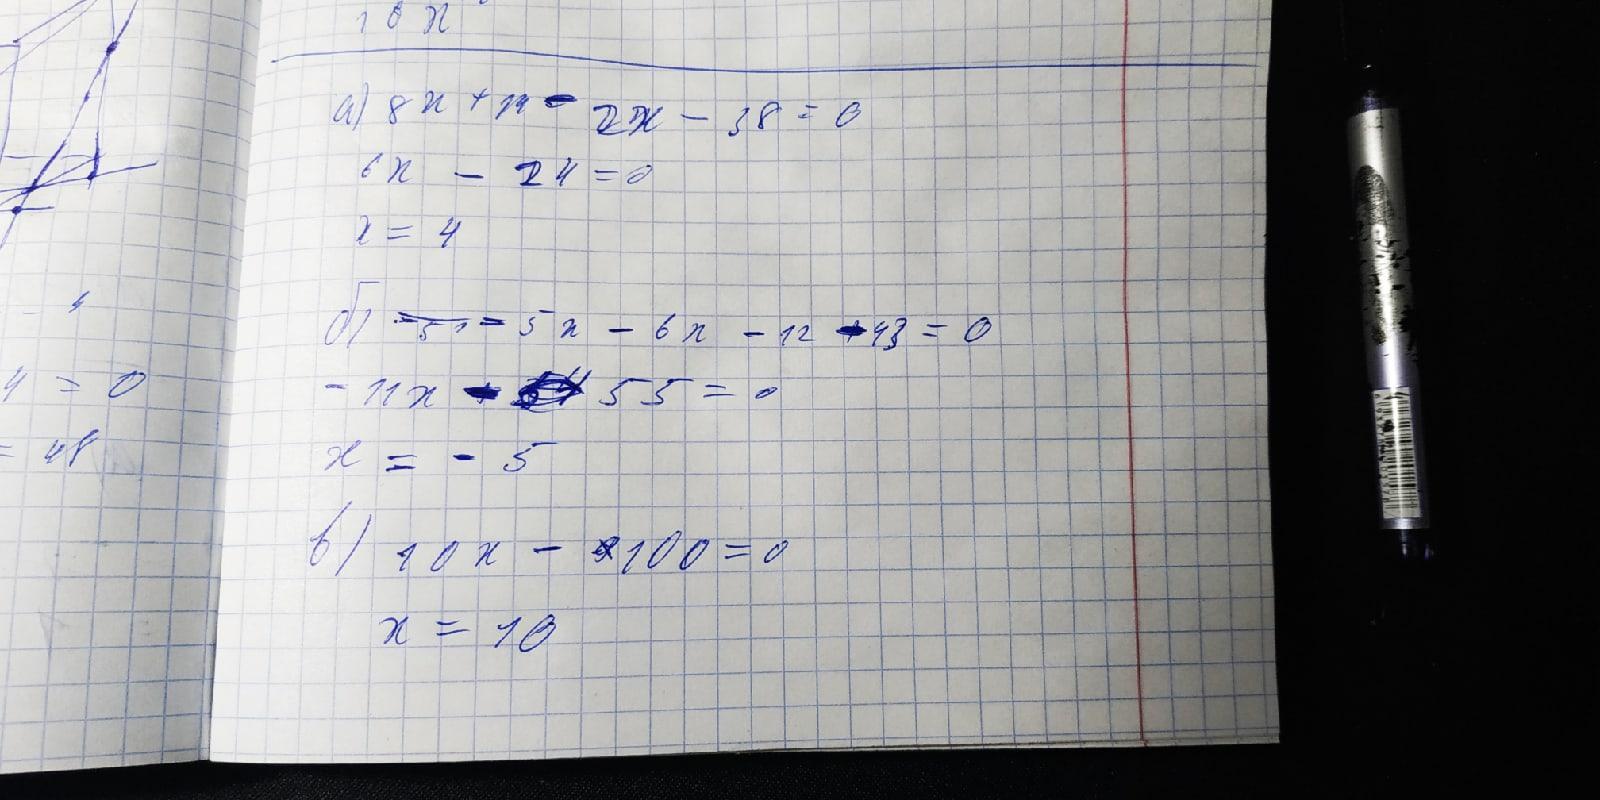 10x
а) 8x + 14 - 2x - 38 = 0
6x - 24 = 0
x = 4
б) - 5x - 6x - 12 - 43 = 0
- 11x - 55 = 0
x = - 5
в) 10x - 100 = 0
x = 10
4 = 0
= 48